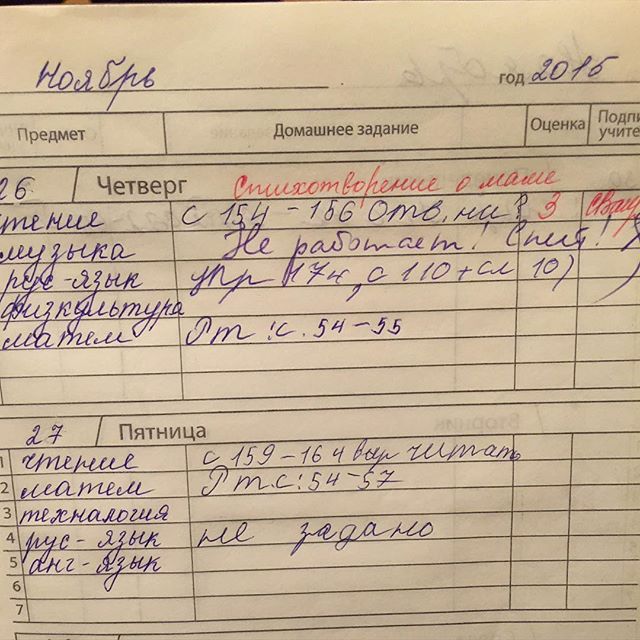 Ноябрь год 2015
Предмет Домашнее задание Оценка Подпи учите
26 Четверг Стихотворение о маме
чтение с 154-156 Отв. на ? 3
музыка Не работает! Спит!
рус-язык упр 174, с 110 + сл 10)
физкультура
матем Рт: с. 54-55
27 Пятница
1 чтение с 159-164 выр читать
2 матем Рт с: 54-57
3 техналогия
4 рус-язык не задано
5 анг-язык
6
7
Вторник